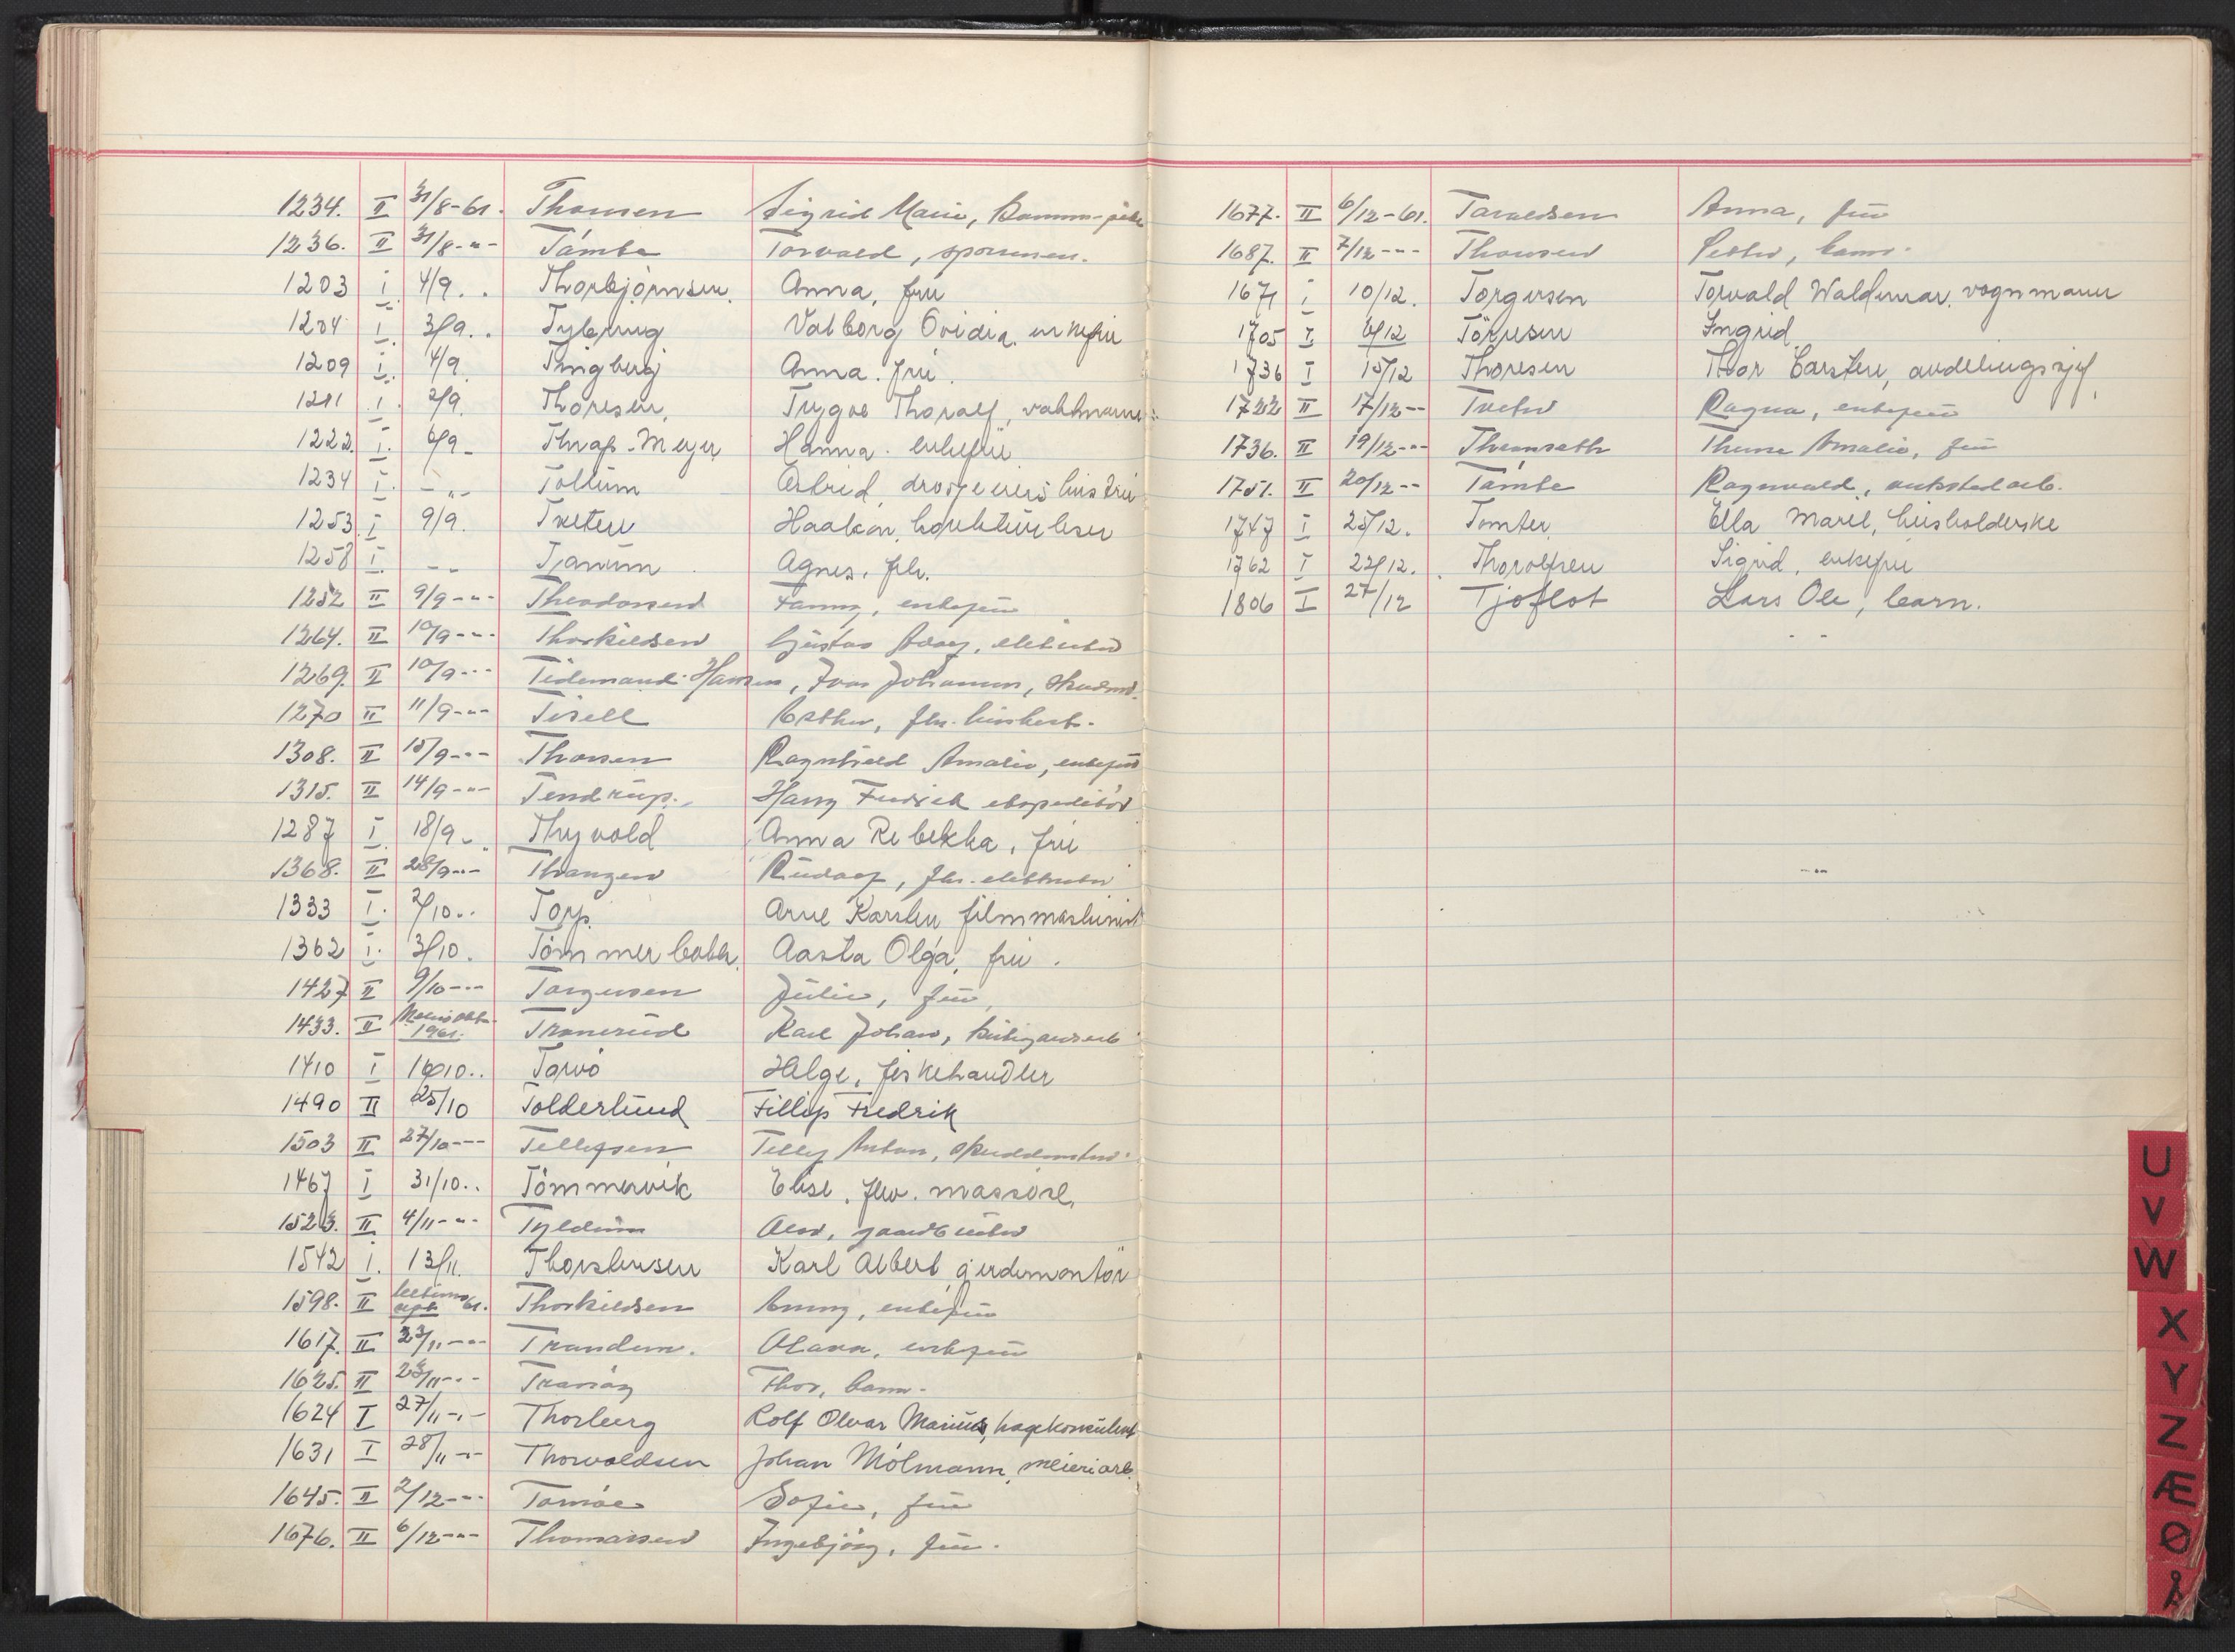 1234. II 31/8-61. Thomsen Sigrid Marie,
1236. II 31/8-"- Támbe Torvald,
1203 I 4/9. . Thorbjørnsen. Anna, frú
1204 I. 3/9. . Valborg Ovidia. enkefrú
1209 I. 4/9. Tingberg Anna. frú.
1211 I. 2/9. Thoresen, Trygve Thoralf, vaktmann
1222. I. 6/9- Thrap-Meyer Hanna. enkefrú
1234 I. -"- Tollúm Astrid, drosjeeiers hústrú
1253 I 9/9. Tveten Haakon, korrektúrleser
1258 I. -"- Tjanúm Agnes, frk.
1252 II 9/9-"- Theodorsen Fanny, enkefrú
1264. II 10/9-"- Thorkildsen Gústav Adolf,
1269. II 10/9-"- Tidemand-Hansen, Ivar Johannes,
1270 II 11/9-"- Tisell Esther, fhv.
1308. II 15/9-"- Thorsen Ragnhild Amalie, enkefrú
1315. II 14/9-"- Tendrúp. Harry Fredrik ekspeditør
1287 I. 18/9- Thyvold Anna Rebekka, frú
1368. II 28/9-"- Thrangen Rúdolf, fhv.
1333 I. 2/10.. Topp. Arne Karsten filmmaskinist
1362 I. 3/10. Tømmerbakk. Aasta Olga, frú.
1427 II 9/10-"- Torgersen Júlie, frú,
1433. II 1961. Tranerúd Karl Johan,
1410 I 16/10.. Tarvo Helge, fiskehandler
1490 II 25/10 Tolderlúnd Fillip Fredrik
1503 II 27/10-"- Tellefsen Tellef Anton,
1467 I 31/10.. Tømmervik Elise. fhv. massøse.
1523. II 4/11-"- Tyldúm gaardbrúker
1542 I. 13/11. Thorstensen Karl Albert
1598. II 61. Thorkildsen enkefrú
1617. II 23/11-"- Trandem. Olava, enkefrú
1625. II 23/11-"- Thor, barn.
1624 I 27/11-"- Thorberg Rolf Olvar Mariús, hagekonsúlent
1631 I 28/11-"- Thorvaldsen Johan Mølmann, meieriarb.
1645. II 2/12-"- Sofie, frú
1676. II 6/12-"- Thomassen Ingebjørg, frú.
1677. II 6/12-61. Taraldsen Anna, frú
1687. II 7/12-"- Thomsen Petter, barn.
1671 I 10/12. Torgersen Torvald Waldemar. vognmann
1705 I. 6/12 Tøresen Ingrid
1736 I 15/12 Thoresen Thor Carsten, avdelingssjef
1722 II 17/12-"- Tveter Ragna, enkefrú
1736. II 19/12-"- Thamsæth Amalie, frú
1751. II 20/12-"- Támbe Ragnvald,
1747 I 25/12. Tomter, Ella Marie, húsholderske
1762 I 22/12. Thorolfsen Sigrid, enkefrú
1806 I 27/12 Tjoflot Lars Ole, barn.
U
V
W
X
Y
Z
Æ
Ø
Å